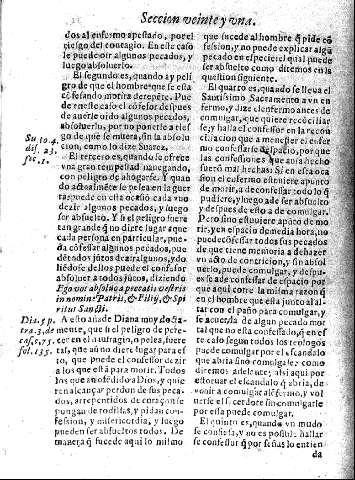 Seccion veinte y vna.
dos al enfermo apestado, por el
riesgo del contagio. En este caso
le puede oir algunos pecados, y
luego absoluerlo.
El segundo es, quando ay peli
gro de que el hombre que se esta
cõfesando morira de repẽte. Pue
de en este caso el cõfesor despues
de auerle oido algunos pecados,
absoluerlo, por no ponerle a ries
go de que se muera, sin la absolu
cion, como lo dize Suarez.
Su. to. 4.
dis. 23.
sec. 1.
El tercero es, quando se ofrece
vna gran tempestad nauegando,
con peligro de ahogarse. Y quan
do actualmẽte se pelea en la guer
ra: puede en esta ocasiõ cada vno
dezir algunos pecados, y luego
ser absuelto. Y si el peligro fuere
tan grande q̃ no diere lugar a que
cada persona en particular, pue-
da cõfesar algunos pecados, pue
dẽ todos jũtos dezir algunos, y do
liẽdose dellos puede el confesor
absoluer a todos jũtos, diziendo
Ego vos absoluo a peccatis vestris
in nomine Patris, & Filij, & Spi
ritus Sancti.
Dia. 5. p.
tra. 3. de
cas. c. 75.
fol. 135.
A esto añade Diana muy docta-
mente, que si el peligro de pere-
cer en el naufragio, o pelea, fuere
tal, que aũ no diere lugar para es
to, que puede el confesor dezir
a los que està para morir. Todos
los que an ofẽdido a Dios, y quie
ren alcançar perdon de sus peca-
dos, arrepentidos de coraçon se
pongan de rodillas, y pidan con-
fession, y misericordia, y luego
pueden ser absueltos todos. De
manera q̃ sucede aqui lo mismo
que sucede al hombre q̃ pide cõ
fession, y no puede explicar algũ
pecado en especie: el qual puede
ser absuelto como diremos en la
question siguiente.
El quarto es, quando se lleua el
Santissimo Sacramento a vn en
fermo, y dize el enfermo antes de
comulgar, que quiere recõciliar
se, y halla el confessor en la recon
ciliacion que a menester el enfer
mo confessarse de espacio, por que
las confessiones que auia hecho
fuerõ mal hechas: Si en esta oca
sion el enfermo estuuiere apunto
de morir, a de confessar todo lo q̃
pudiere, y luego a de ser absuelto
y despues de esto a de comulgar.
Pero sino estuuiere apique de mo
rir, y en espacio de media hora, no
puede confessar todos sus pecados
de que tiene memoria a de hazer
vn acto de contricion, y sin absol
uerlo, puede comulgar, y despues
se a de confessar de espacio por
que aqui corre la misma razon q̃
en el hombre que esta junto al al
tar con el paño para comulgar, y
se acuerda de algun pecado mor
tal que no ella confessado, q̃ en es
te caso segun todos los teologos
puede comulgar por el escandalo
que abria sino comulgase: como
diremos adelante: assi aqui por
estoruar el escandalo q̃ abria, de
venir a comulgar al ẽfermo, y vol
uerse el sacerdote sin comulgarle
por essa puede comulgar.
El quinto es, quando vn mudo
se confiesa, y no es posible hallar
se confessor q̃ por señas lo entien
da